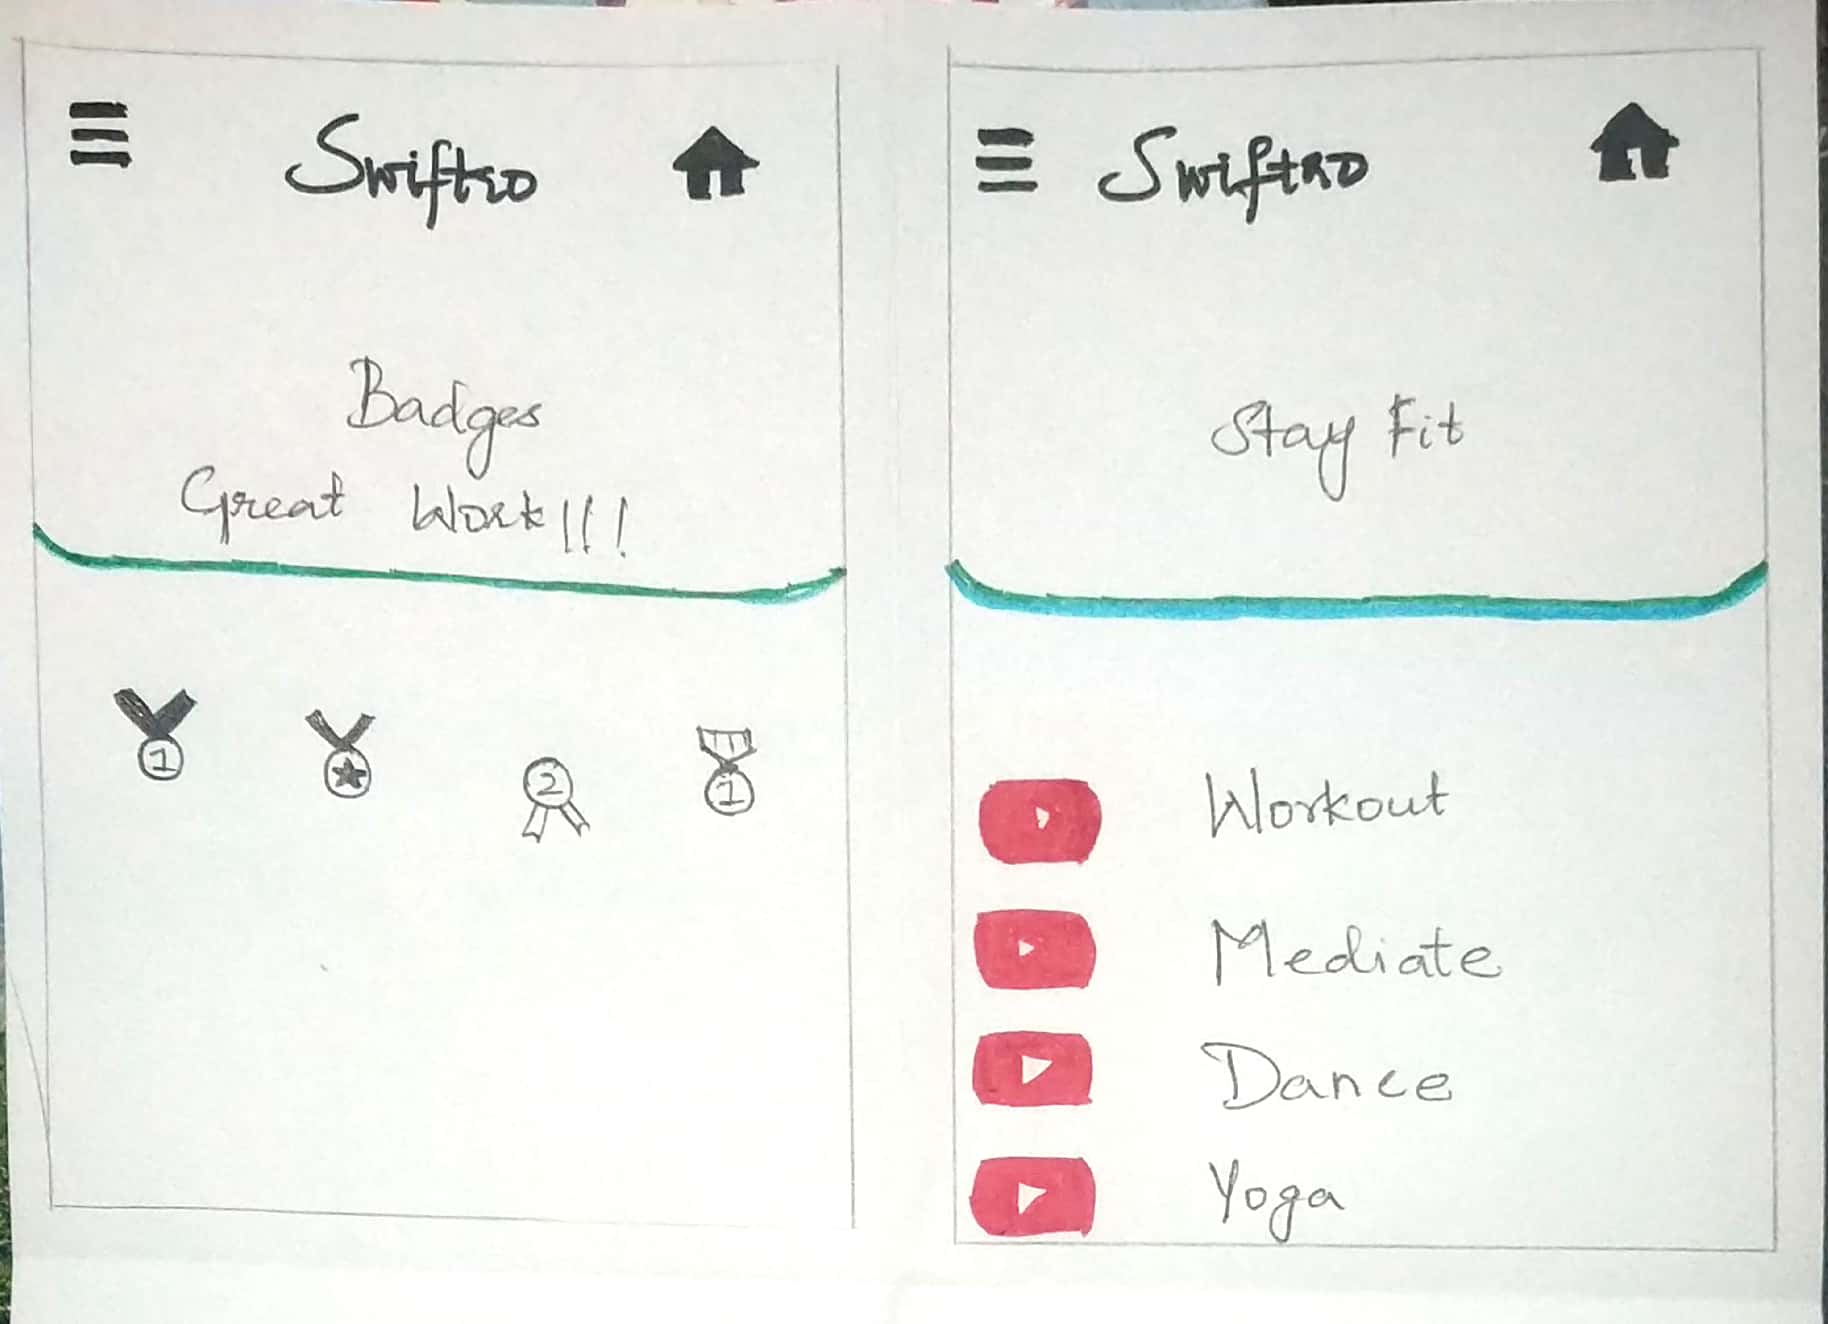 Swiftro
Badges
Great Work!!!
1
2
1
Swiftro
Stay Fit
Workout
Mediate
Dance
Yoga